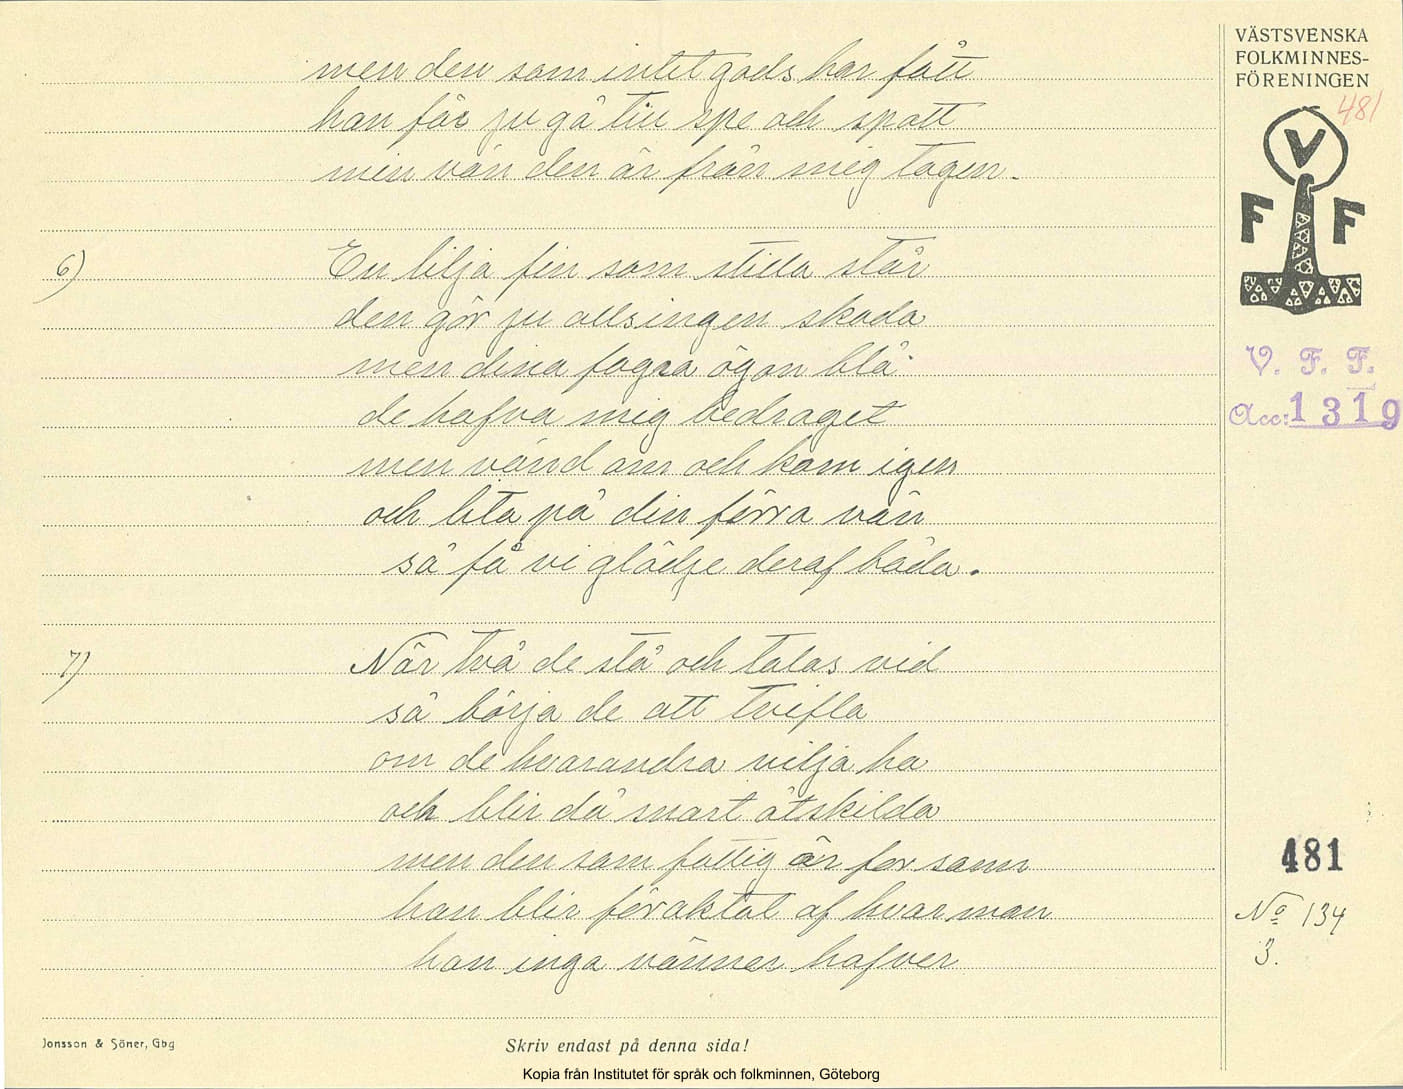 men den som intet gods har fått
han får ju gå till spe och spott
min vän den är från mig tagen.
6)
En lilja fin som stilla står
den gör ju allsingen skada
men dina fagra ögon blå
de hafva mig bedraget
men vänd om och kom igen
och lita på din förra vän
så få vi glädje deraf båda.
7)
När två de stå och talas vid
så börja de att tvifla
om de hvarandra vilja ha
och blir då snart åtskilda
men den som fattig är for sann
han blir föraktat af hvar man
han inga vänner hafver
VÄSTSVENSKA
FOLKMINNES-
FÖRENINGEN
481
V
F F
V. F. F.
Acc: 1319
481
No 134
3.
Jonsson & Söner, Gbg
Skriv endast på denna sida!
Kopia från Institutet för språk och folkminnen, Göteborg